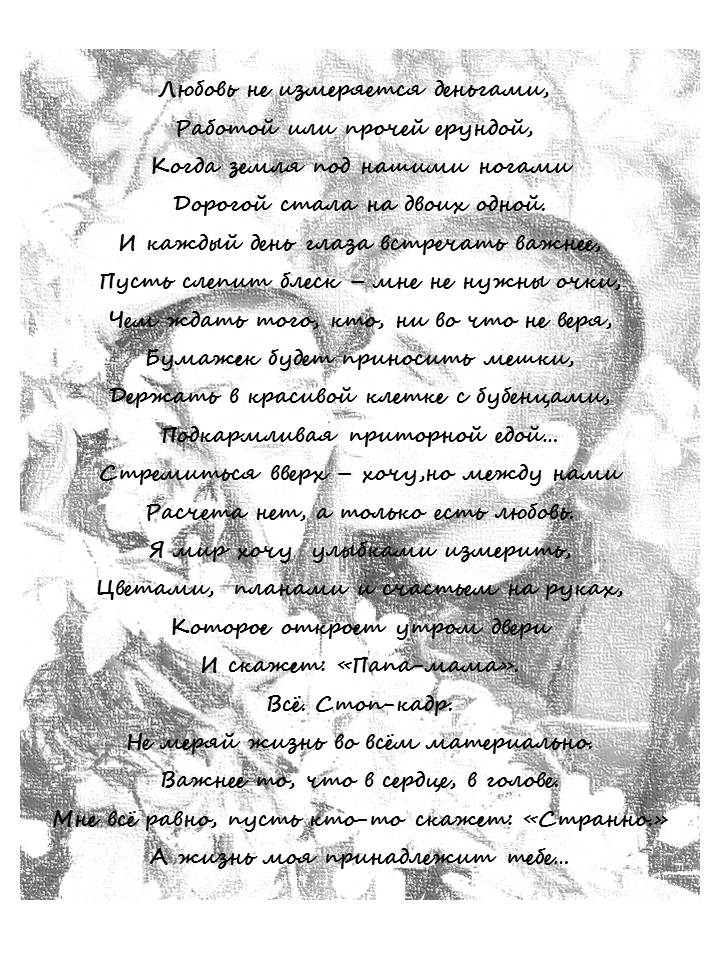 Любовь не измеряется деньгами,
Работой или прочей ерундой,
Когда земля под нашими ногами
Дорогой стала на двоих одной.
И каждый день глаза встречать важнее,
Пусть слепит блеск – мне не нужны очки,
Чем ждать того, кто, ни во что не веря,
Бумажек будет приносить мешки,
Держать в красивой клетке с бубенцами,
Подкармливая приторной едой...
Стремиться вверх – хочу,но между нами
Расчета нет, а только есть любовь.
Я мир хочу улыбками измерить,
Цветами, планами и счастьем на руках,
Которое откроет утром двери
И скажет: «Папа-мама».
Всё. Стоп-кадр.
Не меряй жизнь во всём материально.
Важнее то, что в сердце, в голове.
Мне всё равно, пусть кто-то скажет: «Странно.»
А жизнь моя принадлежит тебе...